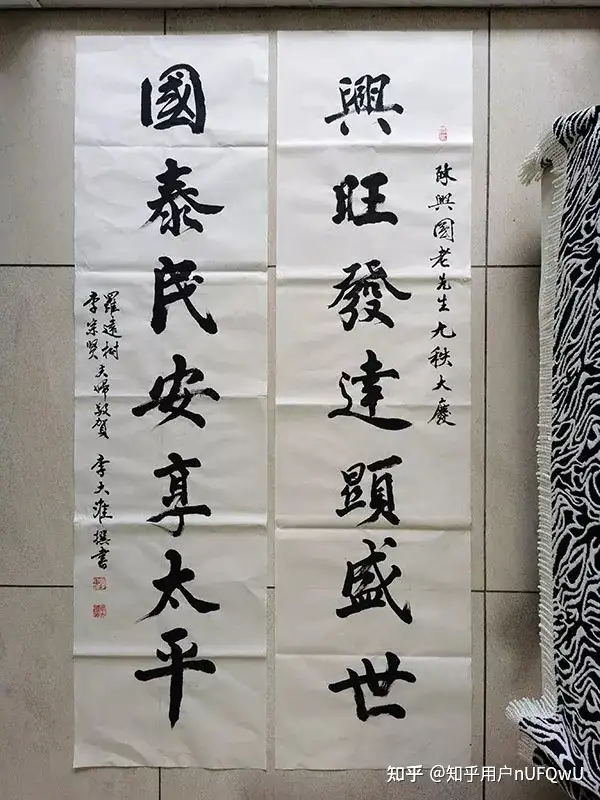 陳興國老先生九秩大慶
興旺發達顯盛世
國泰民安享太平
羅遠樹
李宗賢
夫婦敬賀 李大淮撰書
知乎 @知乎用户nUFQwU